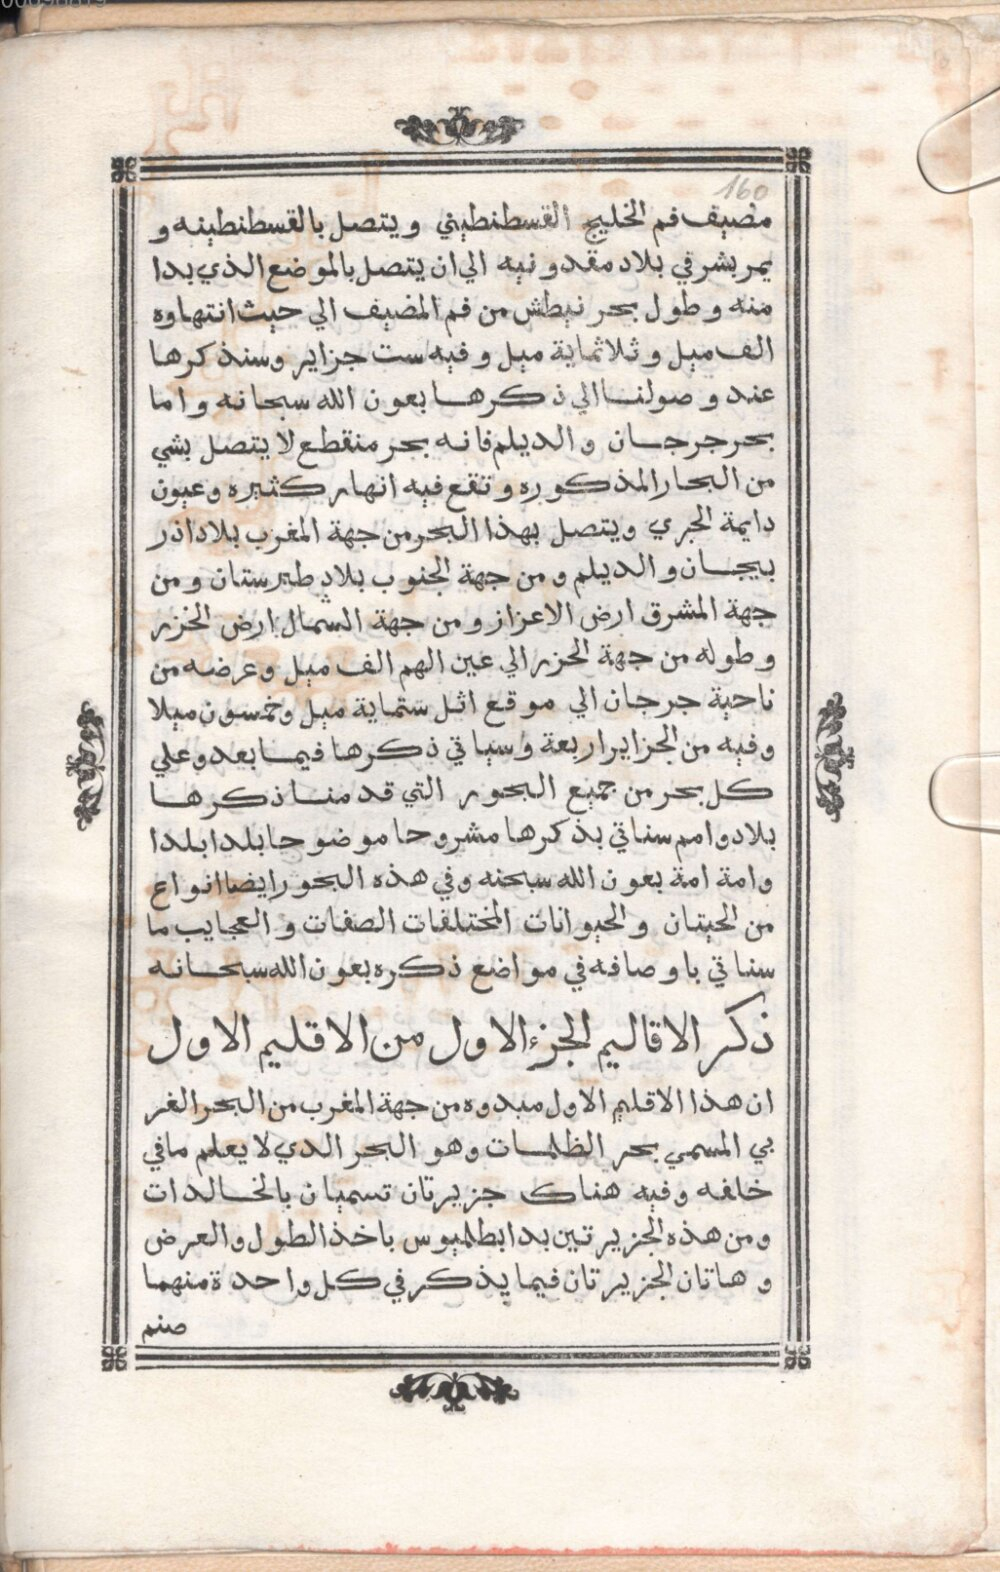 160
مضيف فم الخليج القسطنطيني ويتصل بالقسطنطينه و
يمر بشرفي بلاد مقدونيه الي ان يتصل بالموضع الذي بدا
منه وطول بحر نيطش من فم المضيف الي حيث انتهاوه
الف ميل وثلاثماية ميل وفيه ست جزاير وسنذكرها
عند وصولنا الي ذكرها بعون الله سبحانه واما
بحر جرجان والديلم فانه بحر منقطع لا يتصل بشي
من البحار المذكوره وتقع فيه انهار كثيره وعيون
دايمة الجري ويتصل بهذا البحر من جهة المغرب بلاد اذر
بيجان والديلم ومن جهة الجنوب بلاد طبرستان ومن
جهة المشرق ارض الاعزاز ومن جهة الشمال ارض الخزر
وطوله من جهة الخزر الي عين الهم الف ميل وعرضه من
ناحية جرجان الي موقع اثل ستماية ميل وخمسون ميلا
وفيه من الجزاير اربعة وسياتي ذكرها فيما بعد وعلي
كل بحر من جميع البحور التي قد منا ذكرها
بلاد وامم سناتي بذكرها مشروحا موضوحا بلدا بلدا
وامة امة بعون الله سبحنه وفي هذه البحور ايضا انواع
من الحيتان والحيوانات المختلفات الصفات والعجايب ما
سناتي باوصافه في مواضع ذكره بعون الله سبحانه
ذكر الاقاليم الجزء الاول من الاقليم الاول
ان هذا الاقليم الاول مبدوه من جهة المغرب من البحر الغر
بي المسمي بحر الظلمات وهو البحر الدي لا يعلم ما في
خلفه وفيه هناك جزيرتان تسميان بالخالدات
ومن هذه الجزيرتين بدا بطلميوس باخذ الطول والعرض
وهاتان الجزيرتان فيما يذكر في كل واحدة منهما
صنم